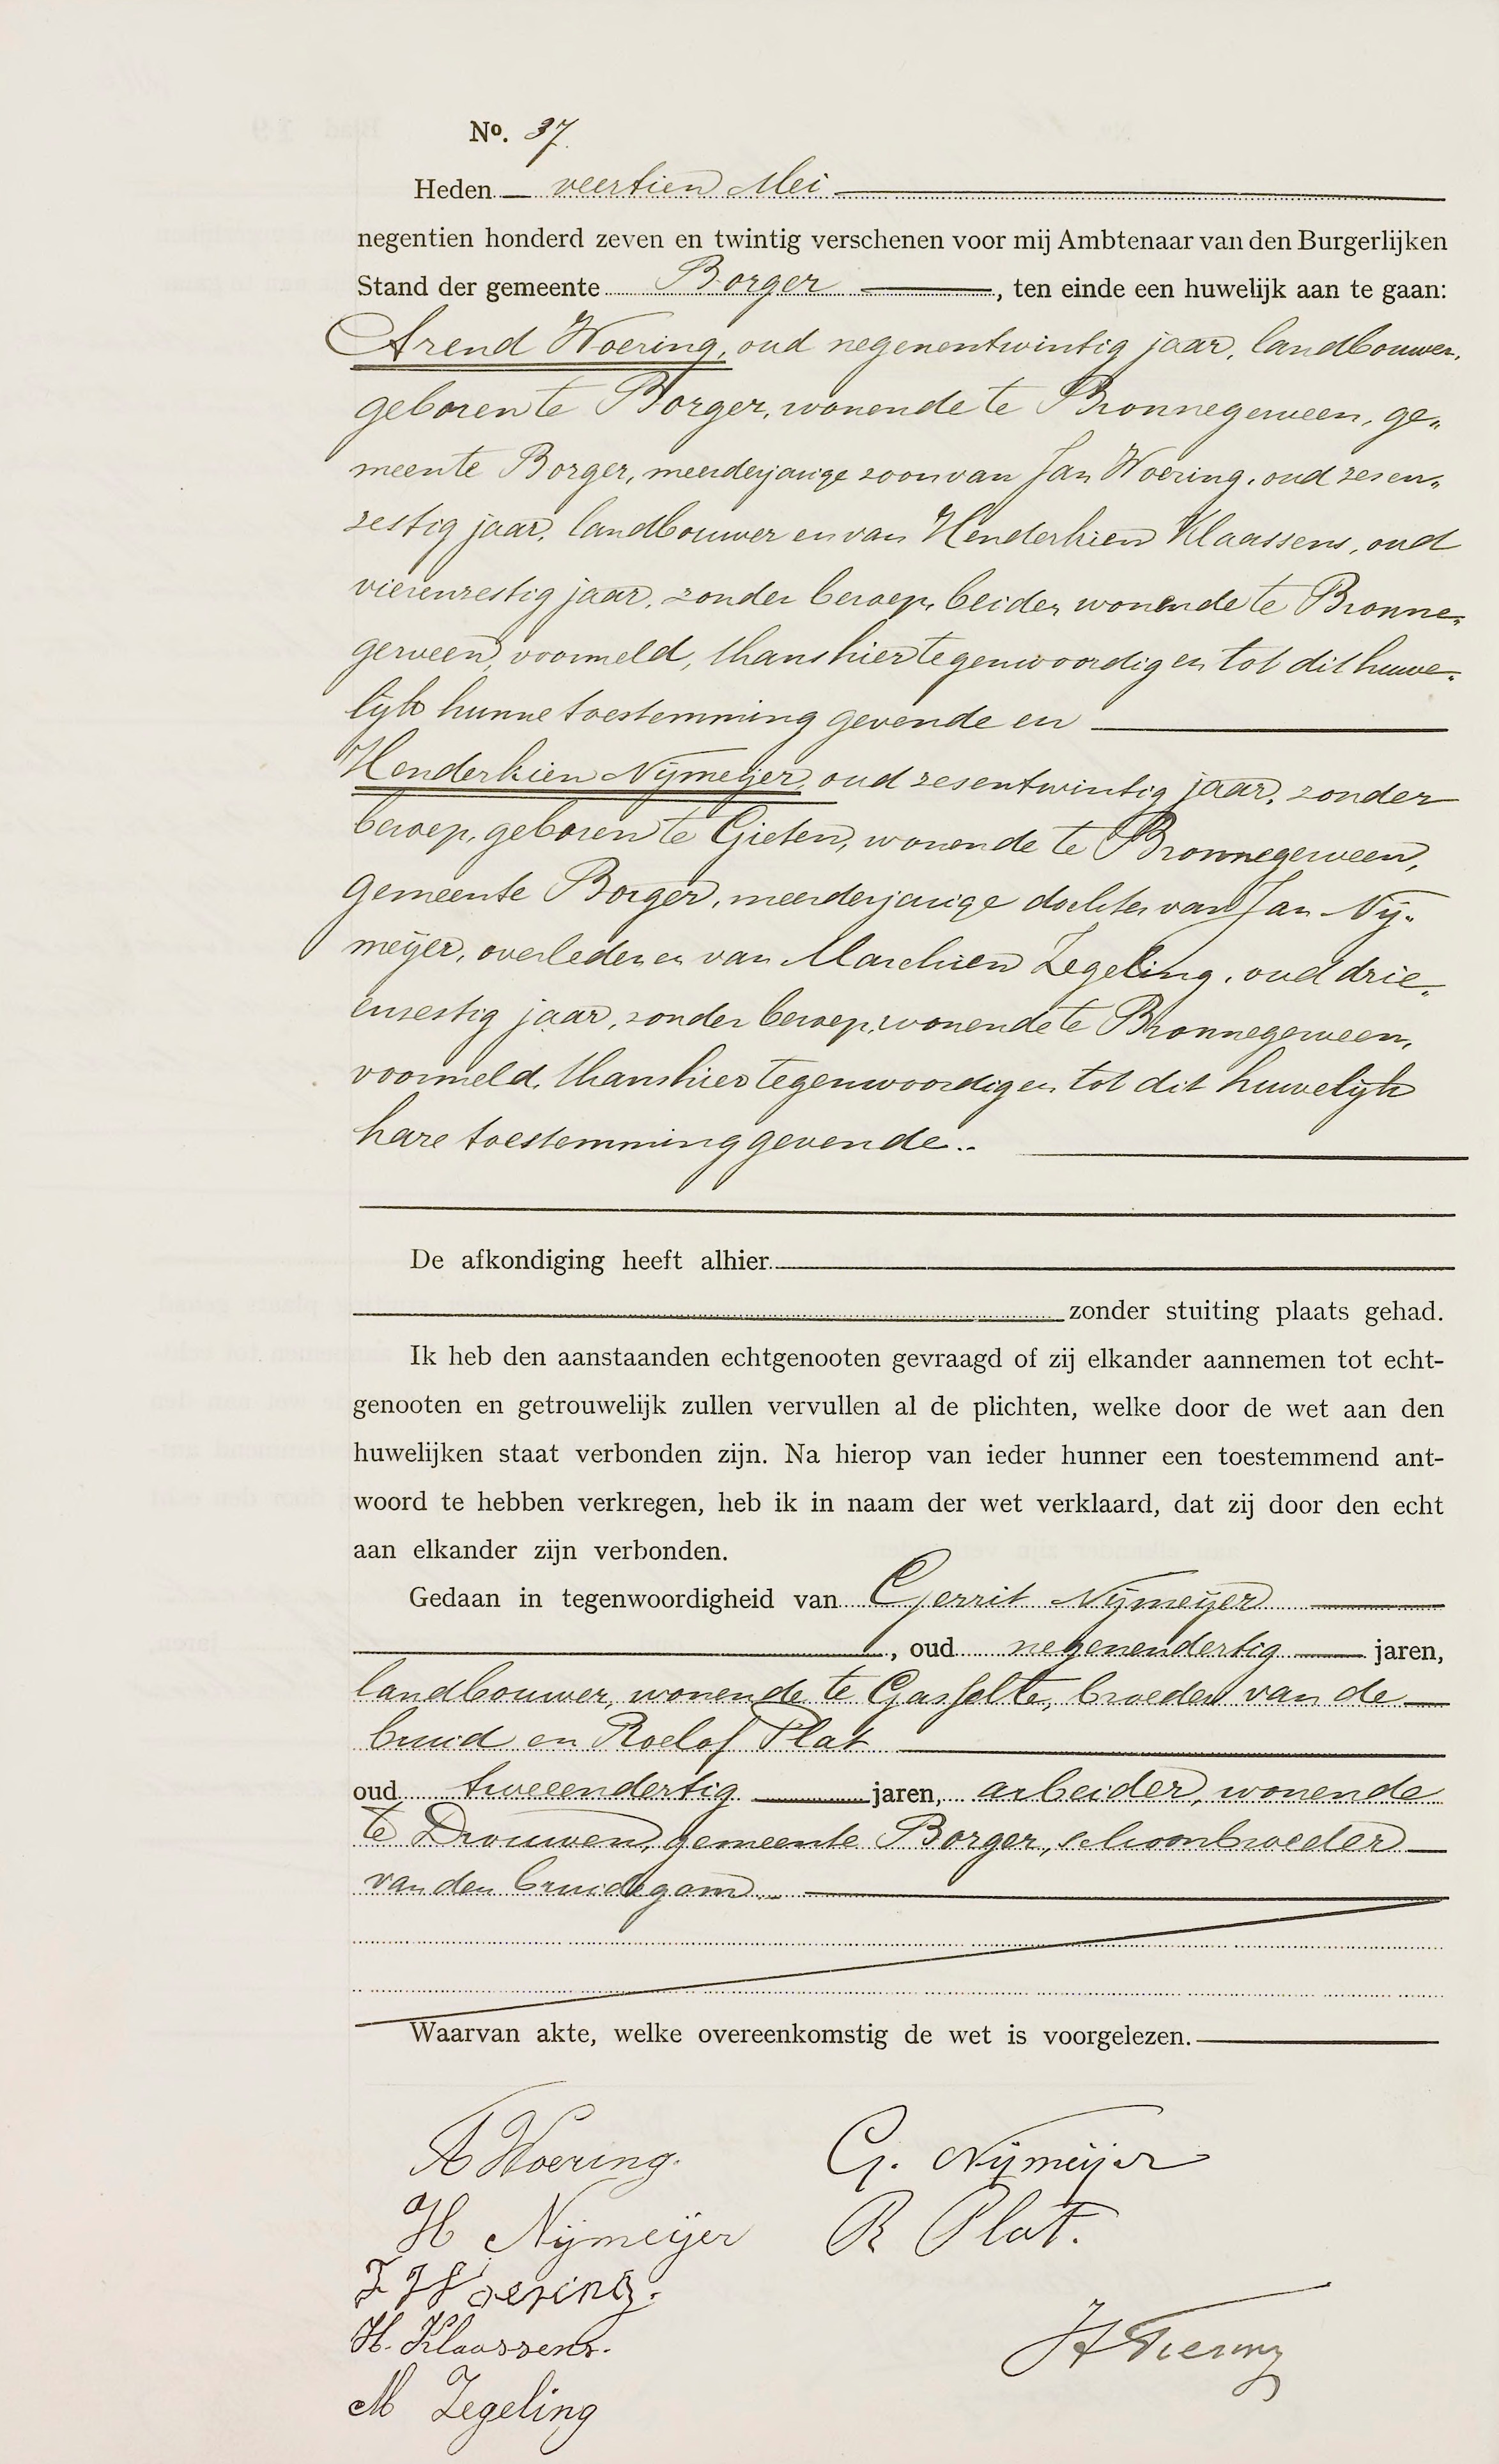 No. 37.
Heden veertien Mei
negentien honderd zeven en twintig verschenen voor mij Ambtenaar van den Burgerlijken
Stand der gemeente Borger, ten einde een huwelijk aan te gaan:
Arend Woering, oud negenentwintig jaar, landbouwer,
geboren te Borger, wonende te Bronnegerveen, ge„
meente Borger, meerderjarige zoon van Jan Woering, oud zesen„
zestig jaar, landbouwer en van Henderkien Klaassens, oud
vierenzestig jaar, zonder beroep, beiden wonende te Bronne„
gerveen, voormeld, thans hier tegenwoordig en tot dit huwe„
lijk hunne toestemming gevende en
Henderkien Nijmeijer, oud zesentwintig jaar, zonder
beroep, geboren te Gieten, wonende te Bronnegerveen,
gemeente Borger, meerderjarige dochter van Jan Nij„
meijer, overleden en van Marchien Zegeling, oud drie„
enzestig jaar, zonder beroep, wonende te Bronnegerveen,
voormeld, thans hier tegenwoordig en tot dit huwelijk
hare toestemming gevende..
De afkondiging heeft alhier
zonder stuiting plaats gehad.
Ik heb den aanstaanden echtgenooten gevraagd of zij elkander aannemen tot echt-
genooten en getrouwelijk zullen vervullen al de plichten, welke door de wet aan den
huwelijken staat verbonden zijn. Na hierop van ieder hunner een toestemmend ant-
woord te hebben verkregen, heb ik in naam der wet verklaard, dat zij door den echt
aan elkander zijn verbonden.
Gedaan in tegenwoordigheid van Gerrit Nijmeijer
, oud negenendertig jaren,
landbouwer, wonende te Gasselte, broeder van de
bruid en Roelof Plat
oud tweeendertig jaren, arbeider, wonende
te Drouwen, gemeente Borger, schoonbroeder
van den bruidegom.
Waarvan akte, welke overeenkomstig de wet is voorgelezen.
A Woering.
G. Nijmeijer
H Nijmeijer
R Plat.
J Woering.
H. Klaassens.
M Zegeling